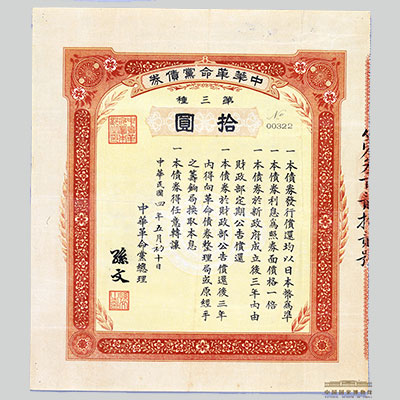 中華革命黨債券
第三種
拾圓
No 00322
一本債券發行償還均以日本幣爲準
一本債券利息爲照券面價格一倍
一本債券於新政府成立後三年內由
財政部定期公告償還
一本債券於財政部公告償還後三年
內得向革命債券整理局或原經手
之籌餉局換取本息
一本債券得任意轉讓
中華民國四年五月初十日
中華革命黨總理
孫文